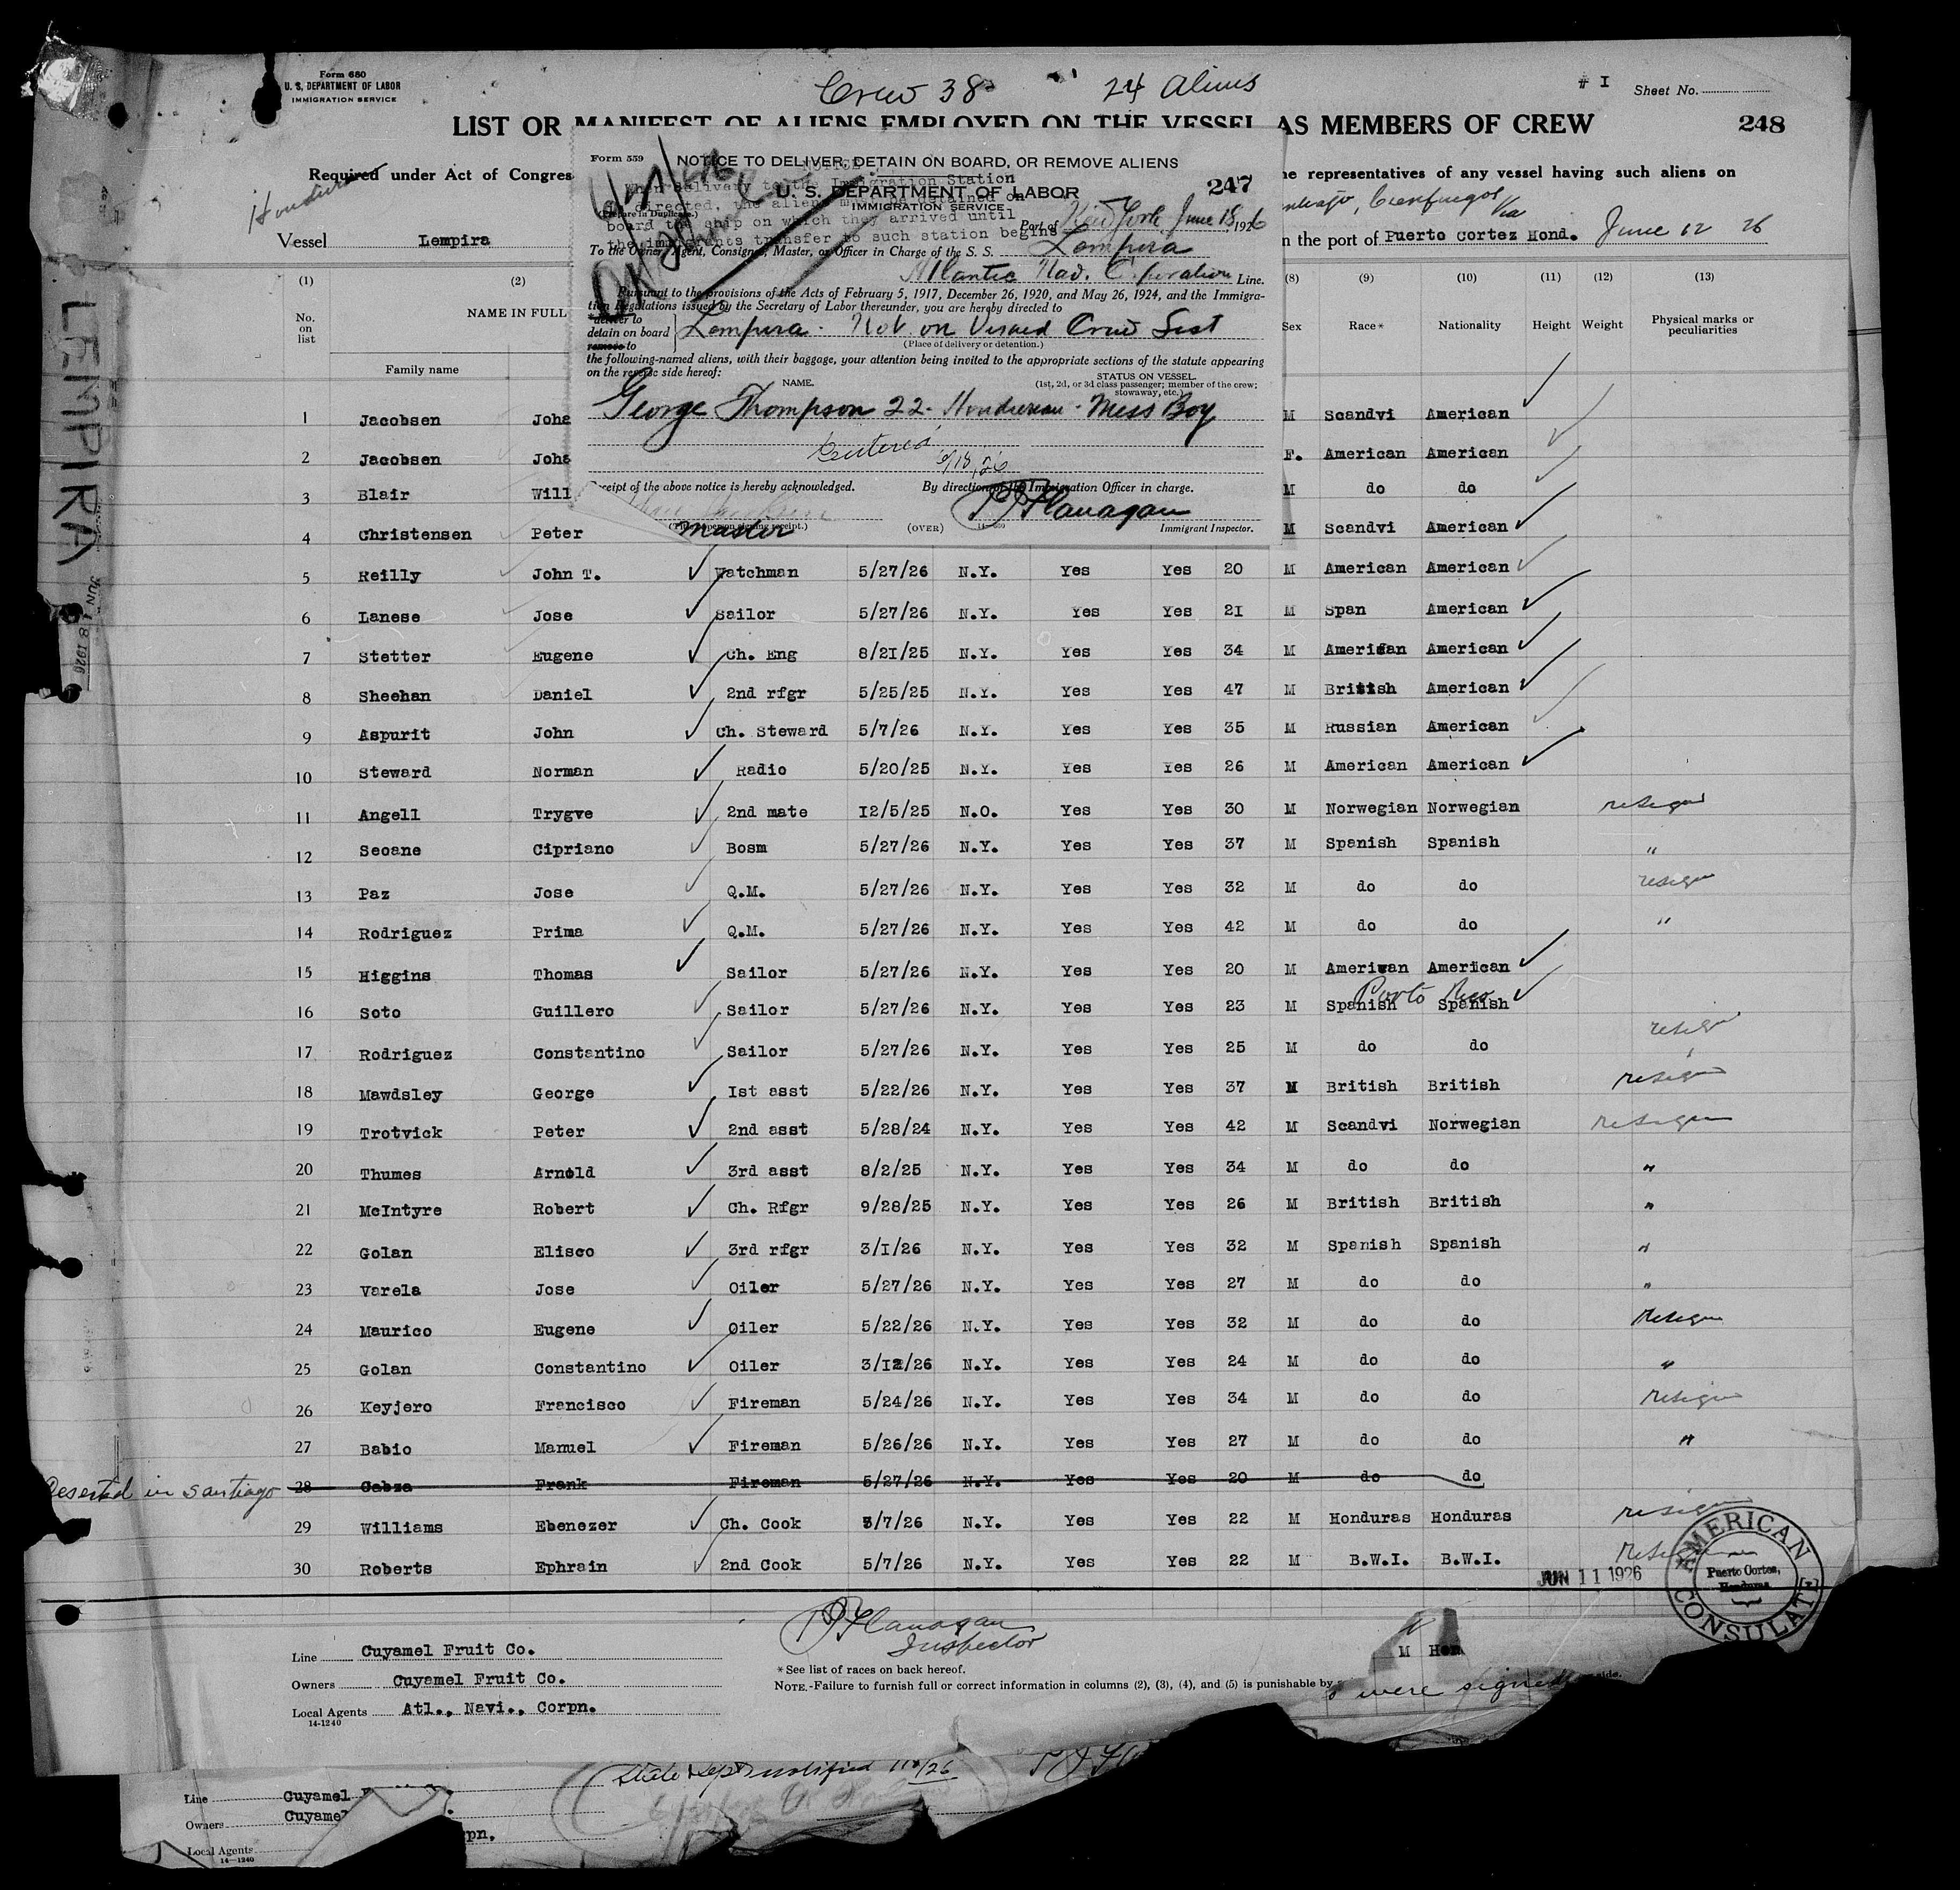 Form 680
U. S. DEPARTMENT OF LABOR
IMMIGRATION SERVICE
Crew 38
24 Aliens
# I
Sheet No.
LIST OR MANIFEST OF ALIENS EMPLOYED ON THE VESSEL AS MEMBERS OF CREW
248
Required under Act of Congres
he representatives of any vessel having such aliens on
Cienfuegos
Via
Vessel Lempira
n the port of Puerto Cortez Hond. June 12 26
Form 559
NOTICE TO DELIVER, DETAIN ON BOARD, OR REMOVE ALIENS
When delivery to the Immigration Station
is directed, the aliens must be detained on
board the ship on which they arrived until
the immigrants transfer to such station begins
U. S. DEPARTMENT OF LABOR
247
IMMIGRATION SERVICE
(Prepare in Duplicate.)
Port of New York, June 18 1926
To the Owner, Agent, Consignee, Master, or Officer in Charge of the S. S. Lempira
Atlantic Nav. Corporation Line.
Pursuant to the provisions of the Acts of February 5, 1917, December 26, 1920, and May 26, 1924, and the Immigra-
tion Regulations issued by the Secretary of Labor thereunder, you are hereby directed to
*deliver to
detain on board Lempira. Not on Visaed Crew List
remove to
(Place of delivery or detention.)
the following-named aliens, with their baggage, your attention being invited to the appropriate sections of the statute appearing
on the reverse side hereof:
NAME.
STATUS ON VESSEL
(1st, 2d, or 3d class passenger; member of the crew; stowaway, etc.)
George Thompson 22- Honduran - Mess Boy
6/18/26
Receipt of the above notice is hereby acknowledged.
By direction of the Immigration Officer in charge.
Master
(Title of person signing receipt.)
(OVER)
P J Flanagan
Immigrant Inspector.
(1) (2) (8) (9) (10) (11) (12) (13)
No. on list
NAME IN FULL
Family name
Sex
Race*
Nationality
Height
Weight
Physical marks or peculiarities
1 Jacobsen Joha M Scandvi American
2 Jacobsen Joha F. American American
3 Blair Will M do do
4 Christensen Peter M Scandvi American
5 Reilly John T. Watchman 5/27/26 N.Y. Yes Yes 20 M American American
6 Lanese Jose Sailor 5/27/26 N.Y. Yes Yes 21 M Span American
7 Stetter Eugene Ch. Eng 8/21/25 N.Y. Yes Yes 34 M American American
8 Sheehan Daniel 2nd rfgr 5/25/25 N.Y. Yes Yes 47 M British American
9 Aspurit John Ch. Steward 5/7/26 N.Y. Yes Yes 35 M Russian American
10 Steward Norman Radio 5/20/25 N.Y. Yes Yes 26 M American American
11 Angell Trygve 2nd mate 12/5/25 N.O. Yes Yes 30 M Norwegian Norwegian resign
12 Seoane Cipriano Bosm 5/27/26 N.Y. Yes Yes 37 M Spanish Spanish "
13 Paz Jose Q.M. 5/27/26 N.Y. Yes Yes 32 M do do resign
14 Rodriguez Prima Q.M. 5/27/26 N.Y. Yes Yes 42 M do do "
15 Higgins Thomas Sailor 5/27/26 N.Y. Yes Yes 20 M American American
Porto Rico
16 Soto Guillero Sailor 5/27/26 N.Y. Yes Yes 23 M Spanish Spanish
17 Rodriguez Constantino Sailor 5/27/26 N.Y. Yes Yes 25 M do do resign
18 Mawdsley George Ist asst 5/22/26 N.Y. Yes Yes 37 M British British resign
19 Trotvick Peter 2nd asst 5/28/24 N.Y. Yes Yes 42 M Scandvi Norwegian resign
20 Thumes Arnold 3rd asst 8/2/25 N.Y. Yes Yes 34 M do do "
21 McIntyre Robert Ch. Rfgr 9/28/25 N.Y. Yes Yes 26 M British British "
22 Golan Elisco 3rd rfgr 3/1/26 N.Y. Yes Yes 32 M Spanish Spanish "
23 Varela Jose Oiler 5/27/26 N.Y. Yes Yes 27 M do do "
24 Maurico Eugene Oiler 5/22/26 N.Y. Yes Yes 32 M do do resign
25 Golan Constantino Oiler 3/12/26 N.Y. Yes Yes 24 M do do "
26 Keyjero Francisco Fireman 5/24/26 N.Y. Yes Yes 34 M do do resign
27 Babio Manuel Fireman 5/26/26 N.Y. Yes Yes 27 M do do "
Deserted in Santiago 28 Cabza Frank Fireman 5/27/26 N.Y. Yes Yes 20 M do do
29 Williams Ebenezer Ch. Cook 5/7/26 N.Y. Yes Yes 22 M Honduras Honduras resign
30 Roberts Ephrain 2nd Cook 5/7/26 N.Y. Yes Yes 22 M B.W.I. B.W.I. resign
JUN 11 1926
AMERICAN CONSULATE
Puerto Cortes, Honduras
P J Flanagan
Inspector
Line Cuyamel Fruit Co.
Owners Cuyamel Fruit Co.
Local Agents Atl., Navi., Corpn.
14-1240
*See list of races on back hereof.
NOTE.-Failure to furnish full or correct information in columns (2), (3), (4), and (5) is punishable by
M Hon
were signed
side.
State Dept notified
Line Cuyamel
Owners Cuyamel
pn.
Local Agents
14-1240
LEMPIRA
JUN 18 1926
Honduras